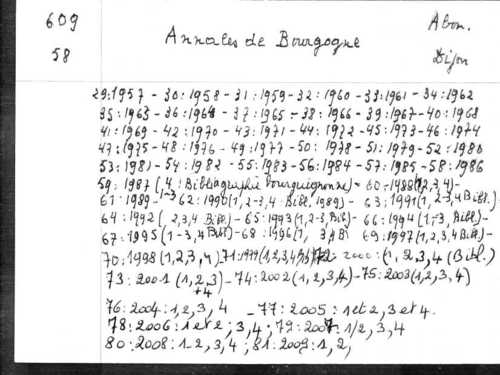 609
58
Annales de Bourgogne
Abon.
Dijon
29:1957 - 30:1958 - 31:1959 - 32:1960 - 33:1961 - 34:1962
35:1963 - 36:1964 - 37:1965 - 38:1966 - 39:1967 - 40:1968
41:1969 - 42:1970 - 43:1971 - 44:1972 - 45:1973 - 46:1974
47:1975 - 48:1976 - 49:1977 - 50:1978 - 51:1979 - 52:1980
53:1981 - 54:1982 - 55:1983 - 56:1984 - 57:1985 - 58:1986
59:1987 (, 4: Bibliographie bourguignonne) - 60:1988 (1,2,3,4) -
61:1989 1-3 62:1990 (1, 2-3,4 Bibl. 1989) - 63:1991 (1, 2-3,4 Bibl.)
64:1992 ( 2,3,4 Bibl) - 65:1993 (1,2-3, Bibl) - 66:1994 (1-3, Bibl.) -
67:1995 (1-3,4 Bibl) - 68:1996 (1, 3,4 B) 69:1997 (1,2,3,4 Bibl) -
70:1998 (1,2,3,4) 71:1999 (1,2,3,4 72:2000: (1,2,3,4 (Bibl.)
73:2001 (1,2,3) - 74:2002 (1,2,3,4) - 75:2003 (1,2,3,4)
+4
76:2004:1,2,3,4 - 77:2005: 1 et 2, 3 et 4.
78:2006:1 et 2; 3,4; 79:2007:1/2,3,4
80:2008:1-2,3,4; 81:2009:1,2,